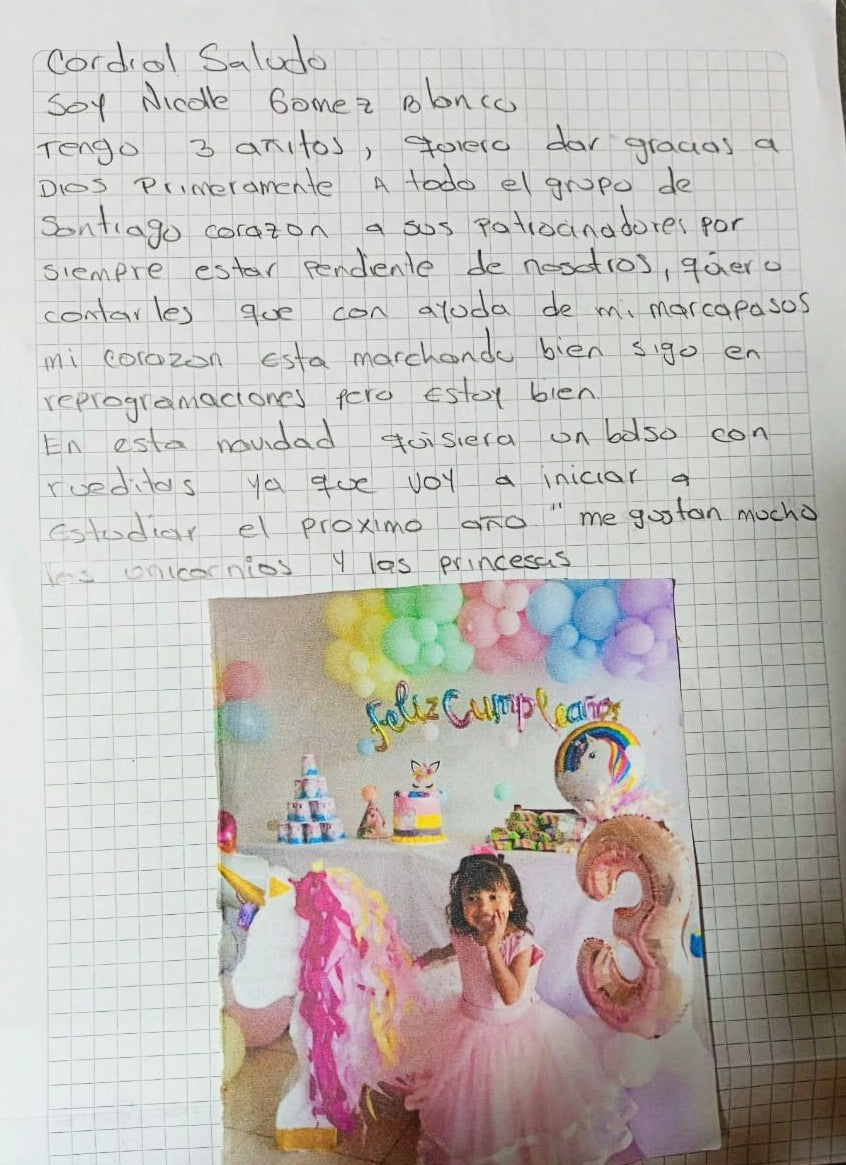 Cordial Saludo
Soy Nicolle Gomez Blanco
Tengo 3 añitos, quiero dar gracias a
Dios Primeramente A todo el grupo de
Santiago corazon a sus Patrocinadores por
siempre estar Pendiente de nosotros, quiero
contarles que con ayuda de mi marcapasos
mi corazon Esta marchando bien sigo en
reprogramaciones pero Estoy bien
En esta navidad quisiera un bolso con
rueditas ya que voy a iniciar a
Estudiar el proximo año " me gustan mucho
los unicornios y las princesas
Feliz Cumpleaños
3